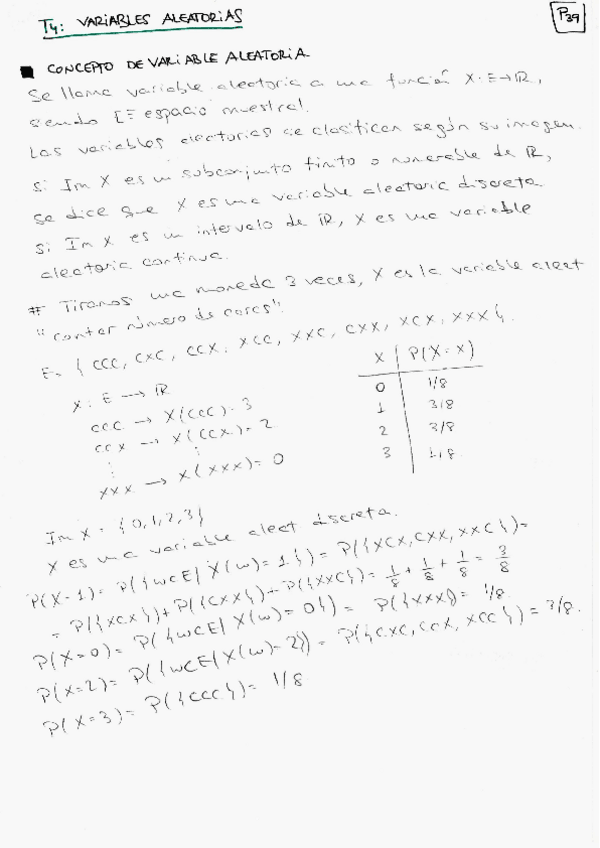 T4: VARIABLES ALEATORIAS
P39
■ CONCEPTO DE VARIABLE ALEATORIA
Se llama variable aleatoria a una función X: E→ℝ,
siendo E≡ espacio muestral.
Las variables aleatorias se clasifican según su imagen.
Si Im X es un subconjunto finito o numerable de ℝ,
se dice que X es una variable aleatoria discreta.
Si Im X es un intervalo de ℝ, X es una variable
aleatoria continua.
# Tiramos una moneda 3 veces, X es la variable aleat
"contar número de caras".
E= { CCC, CXC, CCX, XCC, XXC, CXX, XCX, XXX }.
X: E → ℝ
CCC → X(CCC)=3
CCX → X(CCX)=2
⋮ ⋮
XXX → X(XXX)=0
X | P(X=x)
0 | 1/8
1 | 3/8
2 | 3/8
3 | 1/8
Im X = {0,1,2,3}
X es una variable aleat discreta.
P(X=1)= P({w∈E/ X(w)=1})= P({XCX, CXX, XXC})=
= P({XCX})+P({CXX})+P({XXC})= 1/8 + 1/8 + 1/8 = 3/8
P(X=0)= P({w∈E/ X(w)=0})= P({XXX})= 1/8.
P(X=2)= P({w∈E/ X(w)=2})= P({CXC, CCX, XCC})= 3/8.
P(X=3)= P({CCC})= 1/8